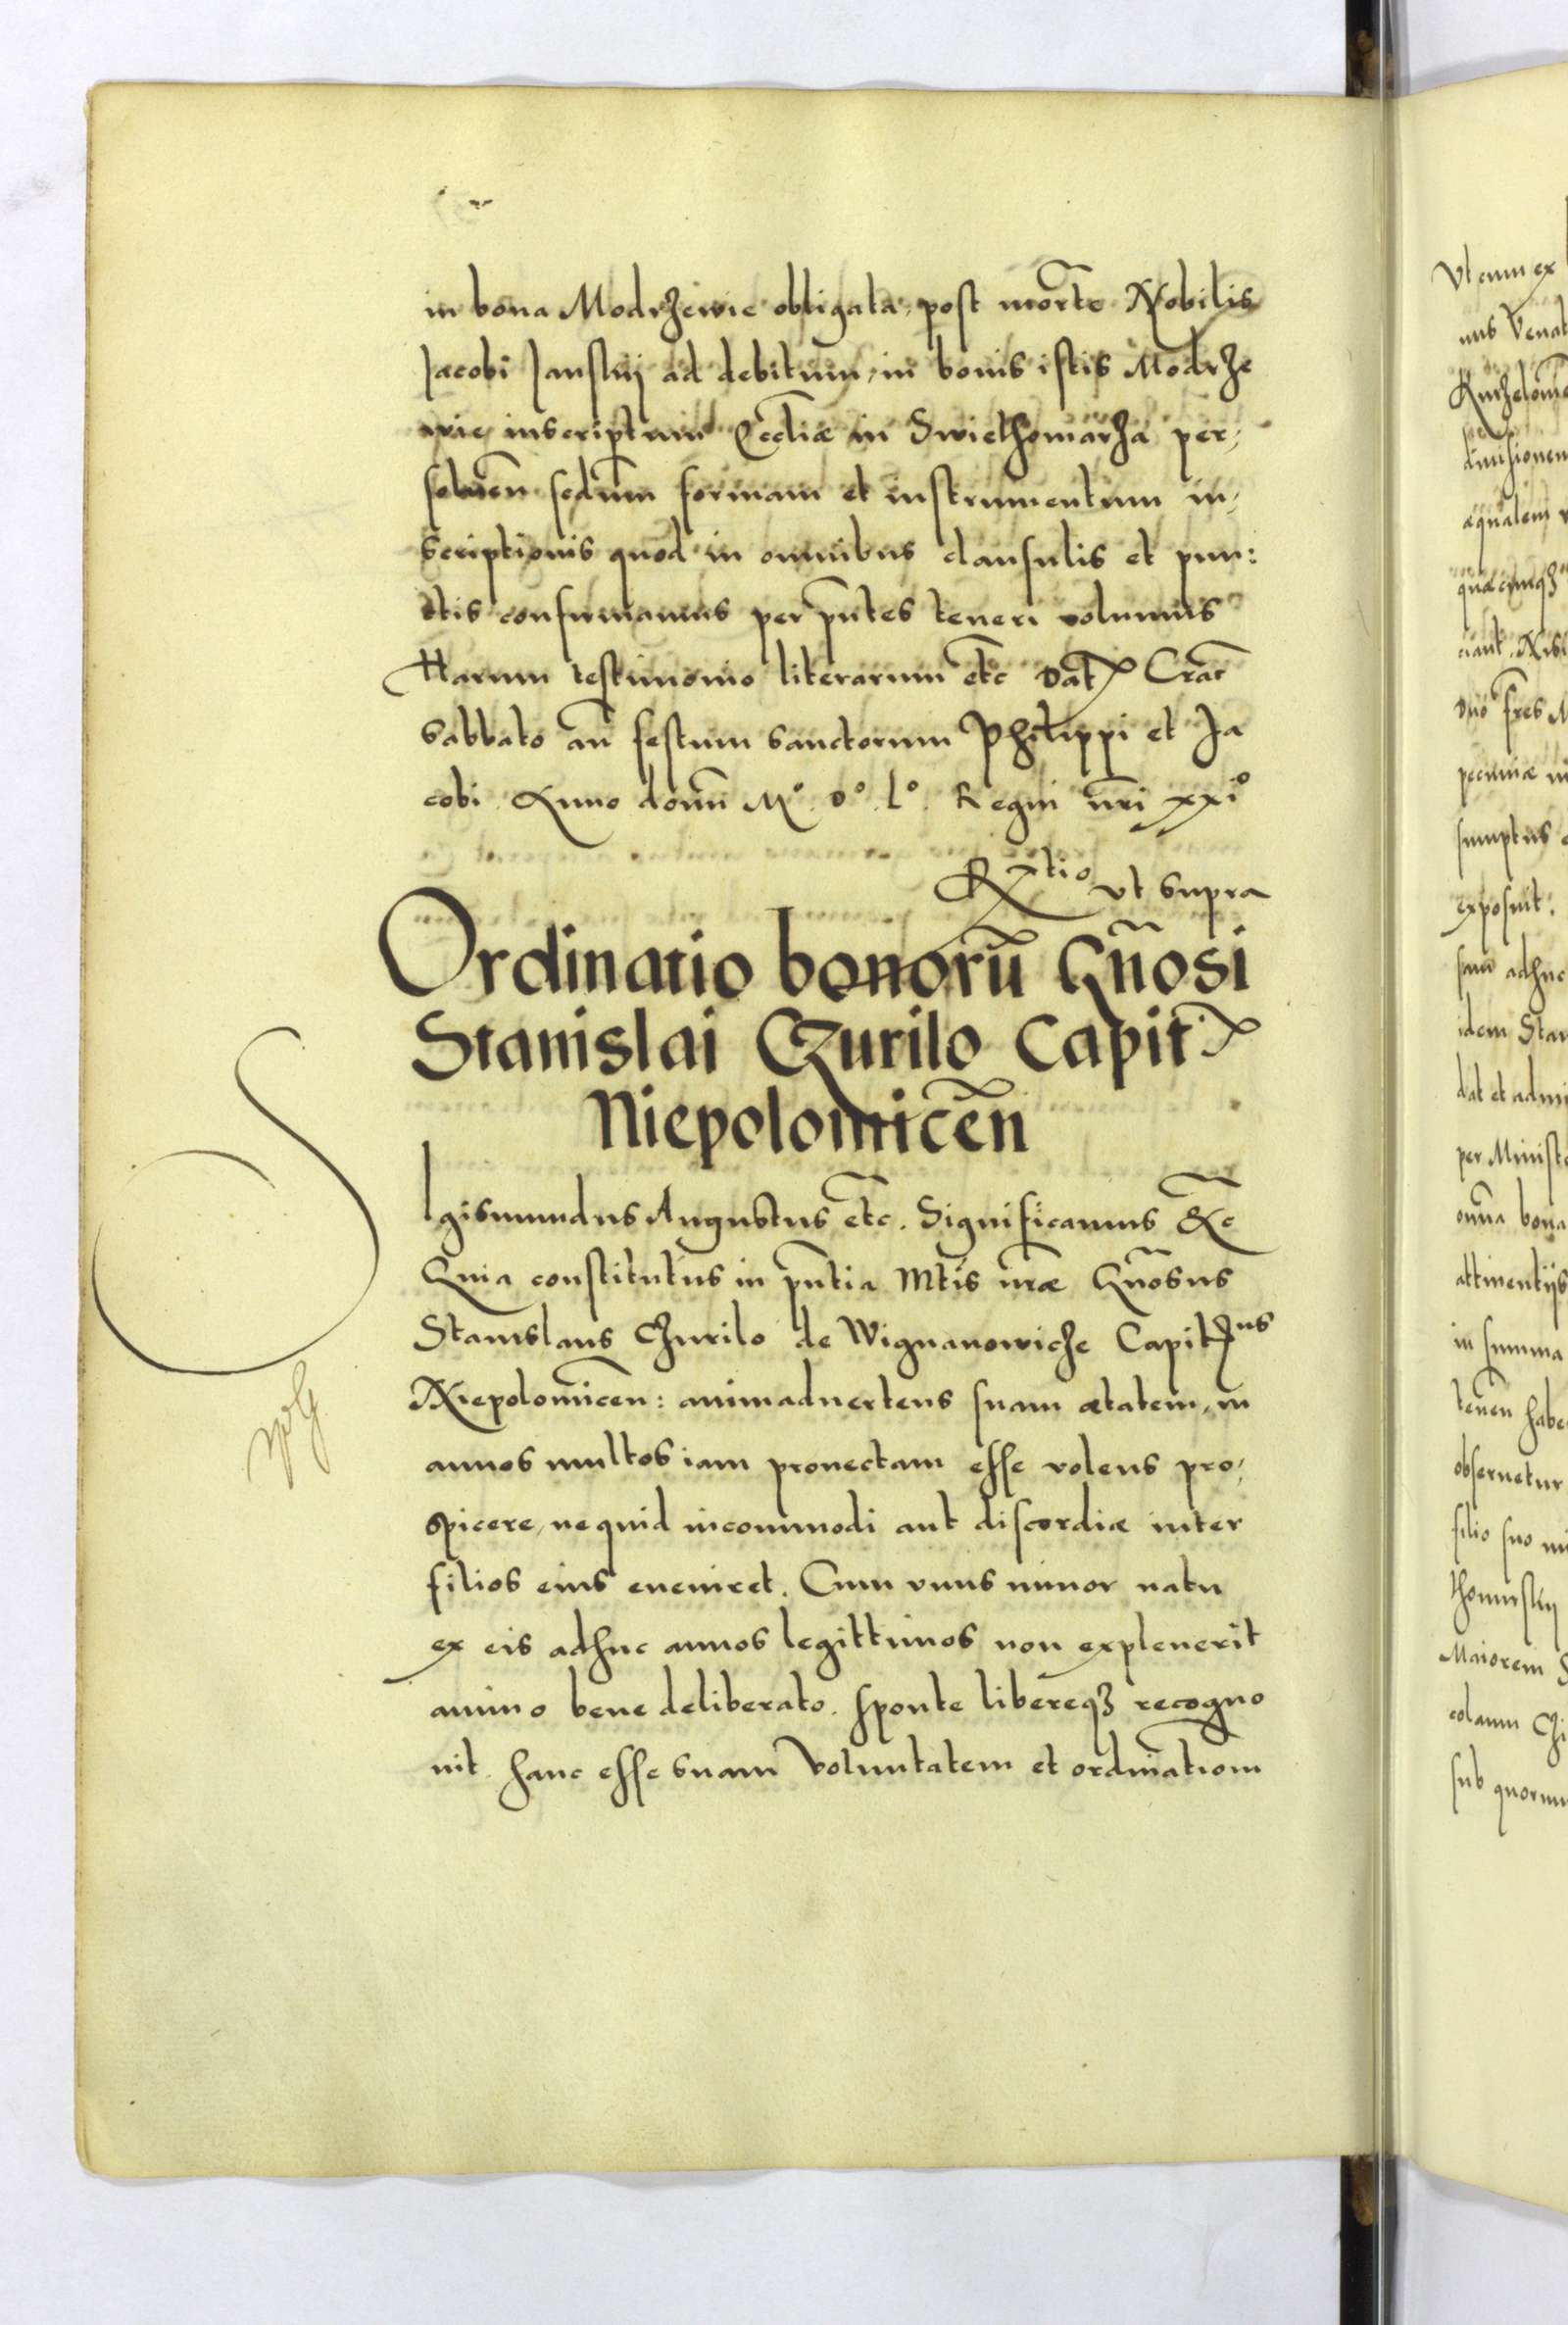 in bona Modrzewie obligata, post mortē Nobilis
Jacobi Janskij ad debitum, in bonis istis Modrze
wie inscriptum Eccliæ in Swiethomarza per,
soluen̄ secdum formam et instrumentum in,
scriptionis quod in omnibus clausulis et pun:
ctis confirmamus per pn̄tes teneri volumus
Harum testimonio literarum etc Dat Crac̄
Sabbato an̄ festum sanctorum Philippi et Ja
cobi Anno domī Mº. Dº. Lº. Regni nr̄i xxiº
Rtio vt supra
Ordinatio bonorū Gn̄osi
Stanislai Czurilo Capit
Niepolomicen̄
Sigismundus Augustus etc. Significamus &c
Quia constitutus in pn̄tia Mtis nr̄æ Gn̄osus
Stanislaus Czurilo de Wignanowicze Capitus
Niepolomicen̄: animaduertens suam ætatem, in
annos multos iam prouectam esse volens pro,
spicere, ne quid incommodi aut discordiæ inter
filios eius eueniret. Cum vnus minor natu
ex eis adhuc annos legittimos non expleuerit
animo bene deliberato. sponte libereqz recogno
uit. hanc esse suam voluntatem et ordinationem
Vt cum ex
nus Venat
diuisionem
æqualem
quæcunqz
duo fr̄es M
pecuniæ in
sumptus
exposuit.
suu adhuc
idem Stan
dat et admi
per Ministe
omīa bona
attinentijs
in summa
tenen̄ habe
obseruetur
filio suo mi
Maiorem S
colaum
sub quorum